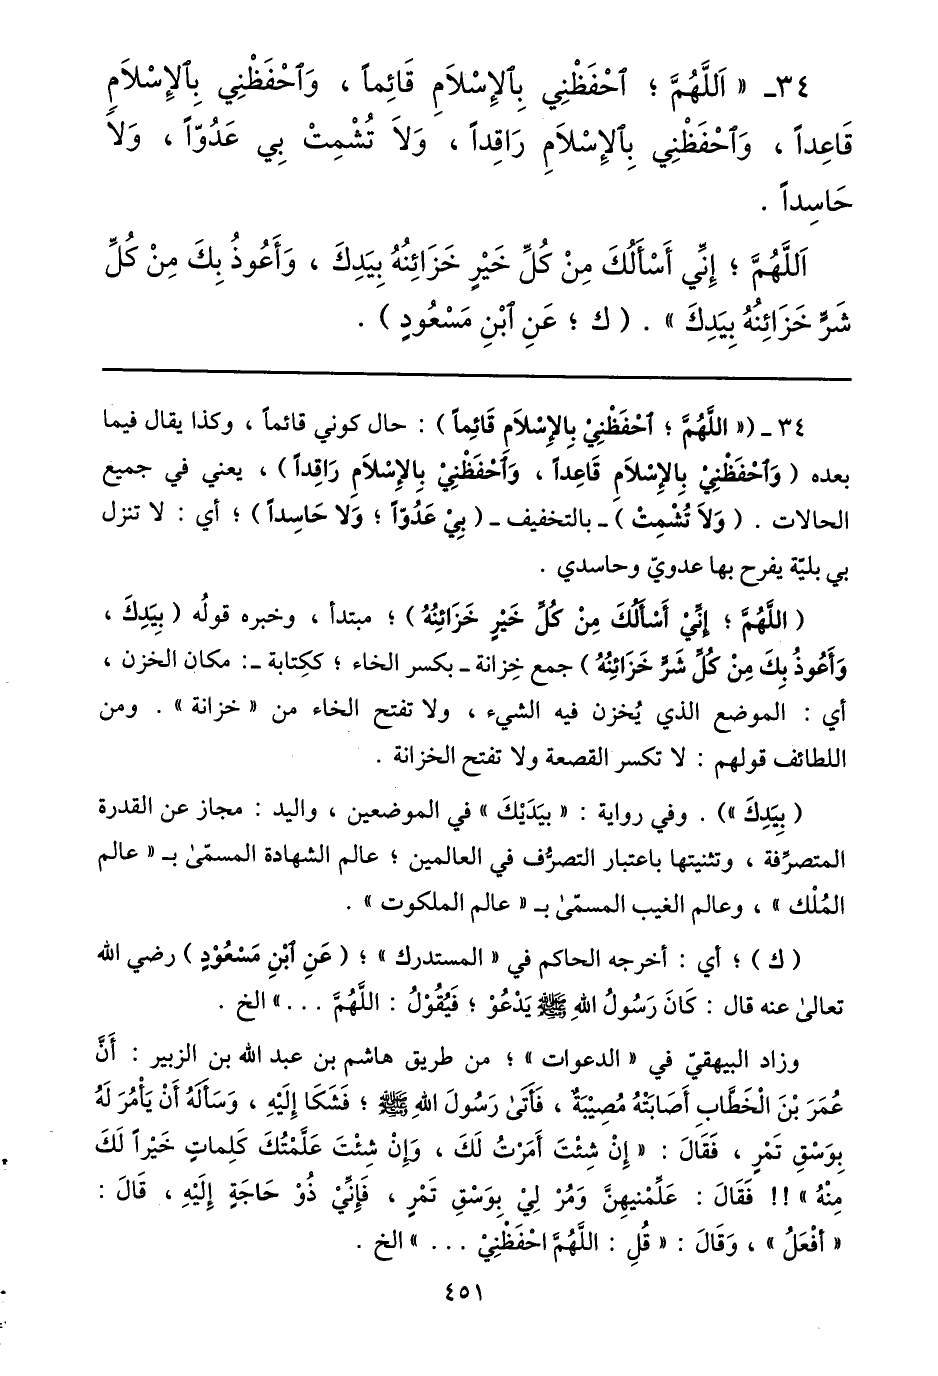 ٣٤ـ « اَللَّهُمَّ ؛ ٱحْفَظْنِي بِٱلإِسْلاَمِ قَائِماً ، وَٱحْفَظْنِي بِٱلإِسْلاَمِ
قَاعِداً ، وَٱحْفَظْنِي بِٱلإِسْلاَمِ رَاقِداً ، وَلاَ تُشْمِتْ بِي عَدُوّاً ، وَلاَ
حَاسِداً .
اَللَّهُمَّ ؛ إِنِّي أَسْأَلُكَ مِنْ كُلِّ خَيْرٍ خَزَائِنُهُ بِيَدِكَ ، وَأَعُوذُ بِكَ مِنْ كُلِّ
شَرٍّ خَزَائِنُهُ بِيَدِكَ » . ( ك ؛ عَنِ ٱبْنِ مَسْعُودٍ ) .
٣٤ ـ (« اللَّهُمَّ ؛ ٱحْفَظْنِيْ بِالإِسْلاَمِ قَائِماً ) : حال كوني قائماً ، وكذا يقال فيما
بعده ( وَٱحْفَظْنِيْ بِالإِسْلاَمِ قَاعِداً ، وَٱحْفَظْنِيْ بِالإِسْلاَمِ رَاقِداً ) ، يعني في جميع
الحالات . ( وَلاَ تُشْمِتْ ) ـ بالتخفيف ـ ( بِيْ عَدُوّاً ؛ وَلا حَاسِداً ) ؛ أي : لا تنزل
بي بليّة يفرح بها عدويّ وحاسدي .
( اللَّهُمَّ ؛ إِنِّيْ أَسْأَلُكَ مِنْ كُلِّ خَيْرٍ خَزَائِنُهُ ) ؛ مبتدأ ، وخبره قولُه ( بِيَدِكَ ،
وَأَعُوذُ بِكَ مِنْ كُلِّ شَرٍّ خَزَائِنُهُ ) جمع خِزانة ـ بكسر الخاء ؛ ككِتابة ـ : مكان الخزن ،
أي : الموضع الذي يُخزن فيه الشيء ، ولا تفتح الخاء من « خزانة » . ومن
اللطائف قولهم : لا تكسر القصعة ولا تفتح الخزانة .
( بِيَدِكَ ») . وفي رواية : « بيَدَيْكَ » في الموضعين ، واليد : مجاز عن القدرة
المتصرِّفة ، وتثنيتها باعتبار التصرُّف في العالمين ؛ عالم الشهادة المسمّىٰ بـ « عالم
المُلْك » ، وعالم الغيب المسمّىٰ بـ « عالم الملكوت » .
( ك ) ؛ أي : أخرجه الحاكم في « المستدرك » ؛ ( عَنِ ٱبْنِ مَسْعُوْدٍ ) رضي الله
تعالىٰ عنه قال : كَانَ رَسُولُ اللهِ ﷺ يَدْعُوْ ؛ فَيُقُوْلُ : اللَّهُمَّ . . . » الخ .
وزاد البيهقيّ في « الدعوات » ؛ من طريق هاشم بن عبد الله بن الزبير : أَنَّ
عُمَرَ بْنَ الْخَطَّابِ أَصَابَتْهُ مُصِيبَةٌ ، فَأَتَىٰ رَسُولَ اللهِ ﷺ ؛ فَشَكَا إِلَيْهِ ، وَسَأَلَهُ أَنْ يَأْمُرَ لَهُ
بِوَسْقِ تَمْرٍ ، فَقَالَ : « إِنْ شِئْتَ أَمَرْتُ لَكَ ، وَإِنْ شِئْتَ عَلَّمْتُكَ كَلِمَاتٍ خَيْراً لَكَ
مِنْهُ » !! فَقَالَ : عَلِّمْنِيهِنَّ وَمُرْ لِيْ بِوَسْقِ تَمْرٍ ، فَإِنِّيْ ذُوْ حَاجَةٍ إِلَيْهِ ، قَالَ :
« أَفْعَلُ » ، وَقَالَ : « قُلِ : اللَّهُمَّ احْفَظْنِيْ . . . » الخ .
٤٥١